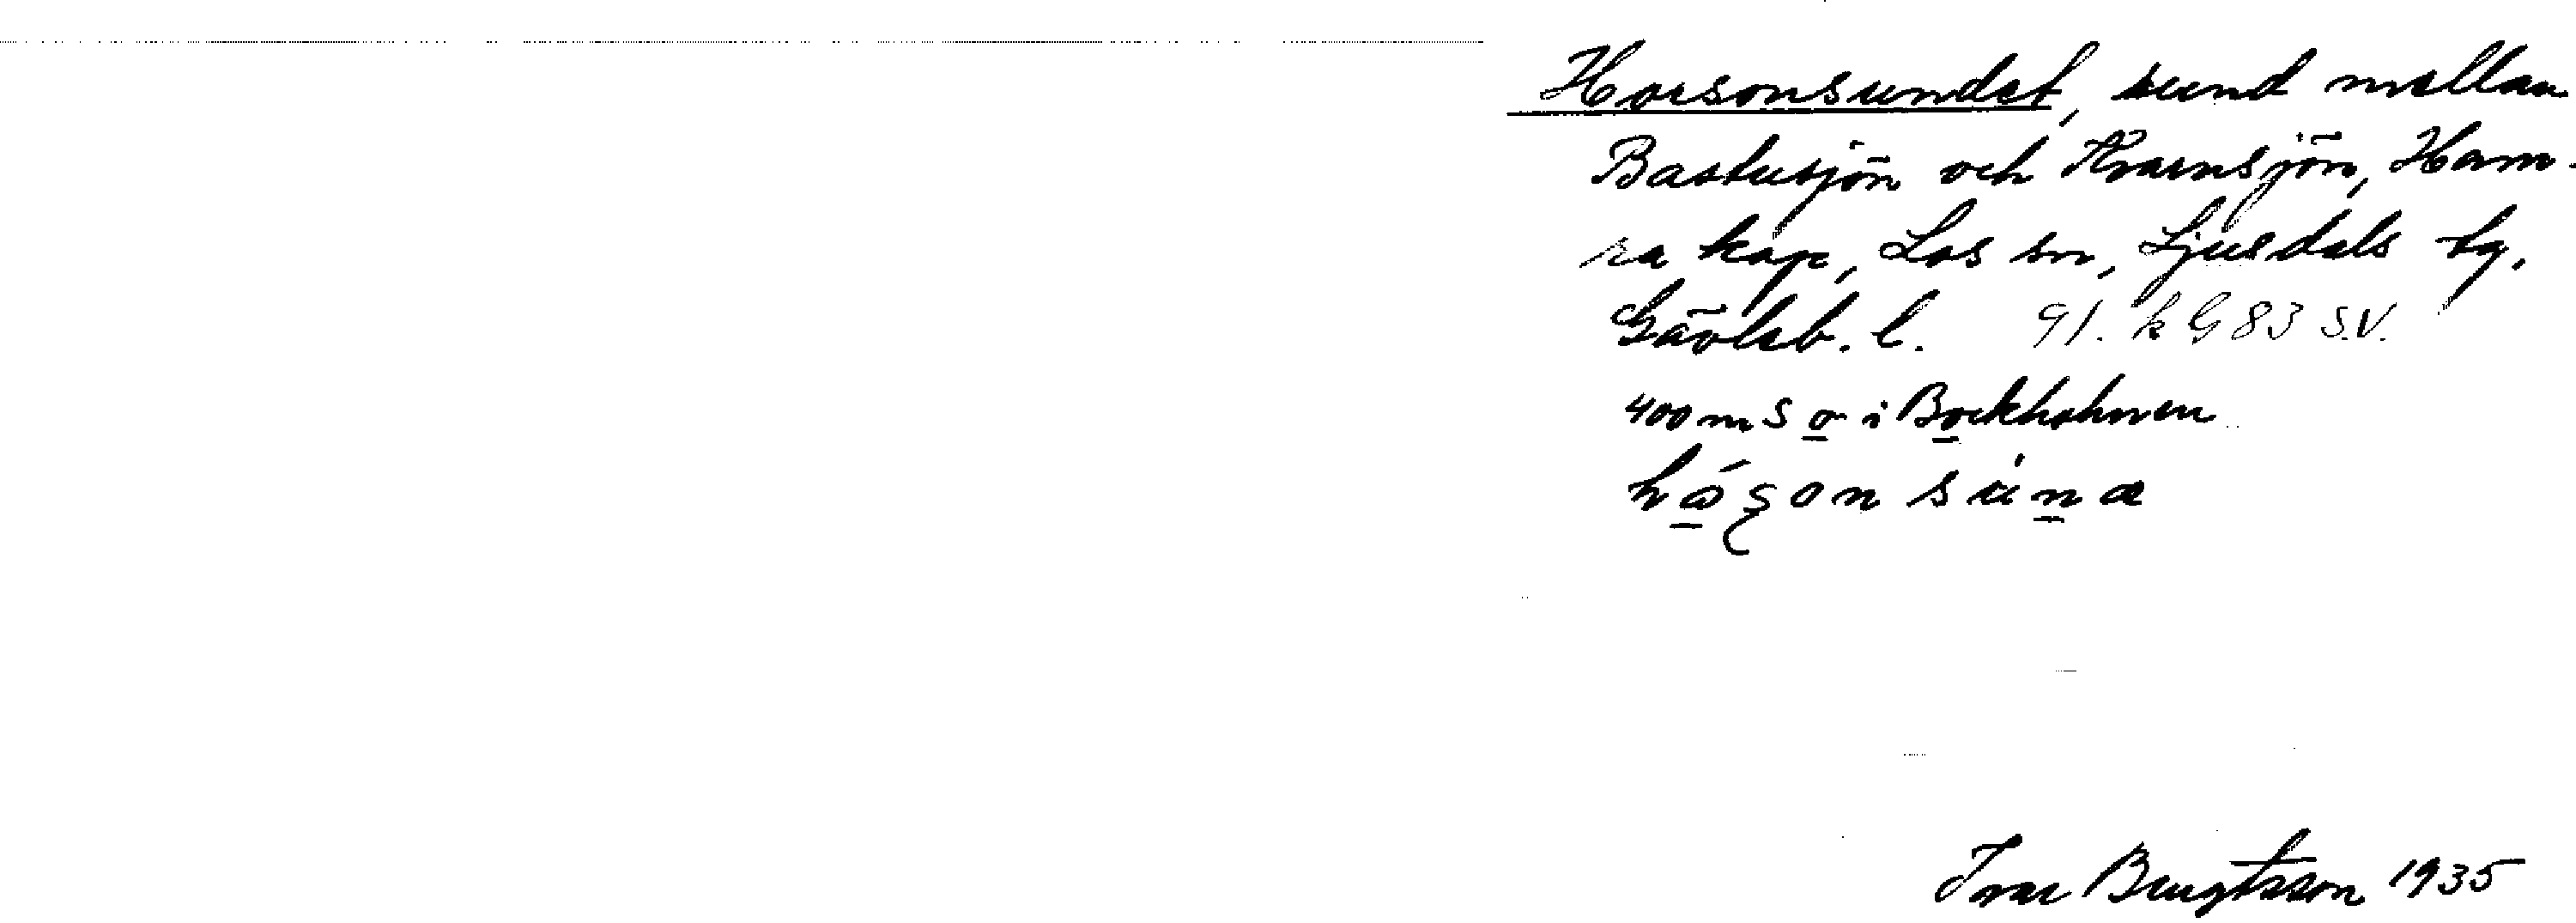 Horsonsundet, sund mellan
Bastusjön och Kvarnsjön, Ham-
ra kap, Los sn, Ljusdals tg,
Gävleb. l. 91. k G 83 S.V.
400 m S o i Bockholmen
Ivar Bengtsson 1935